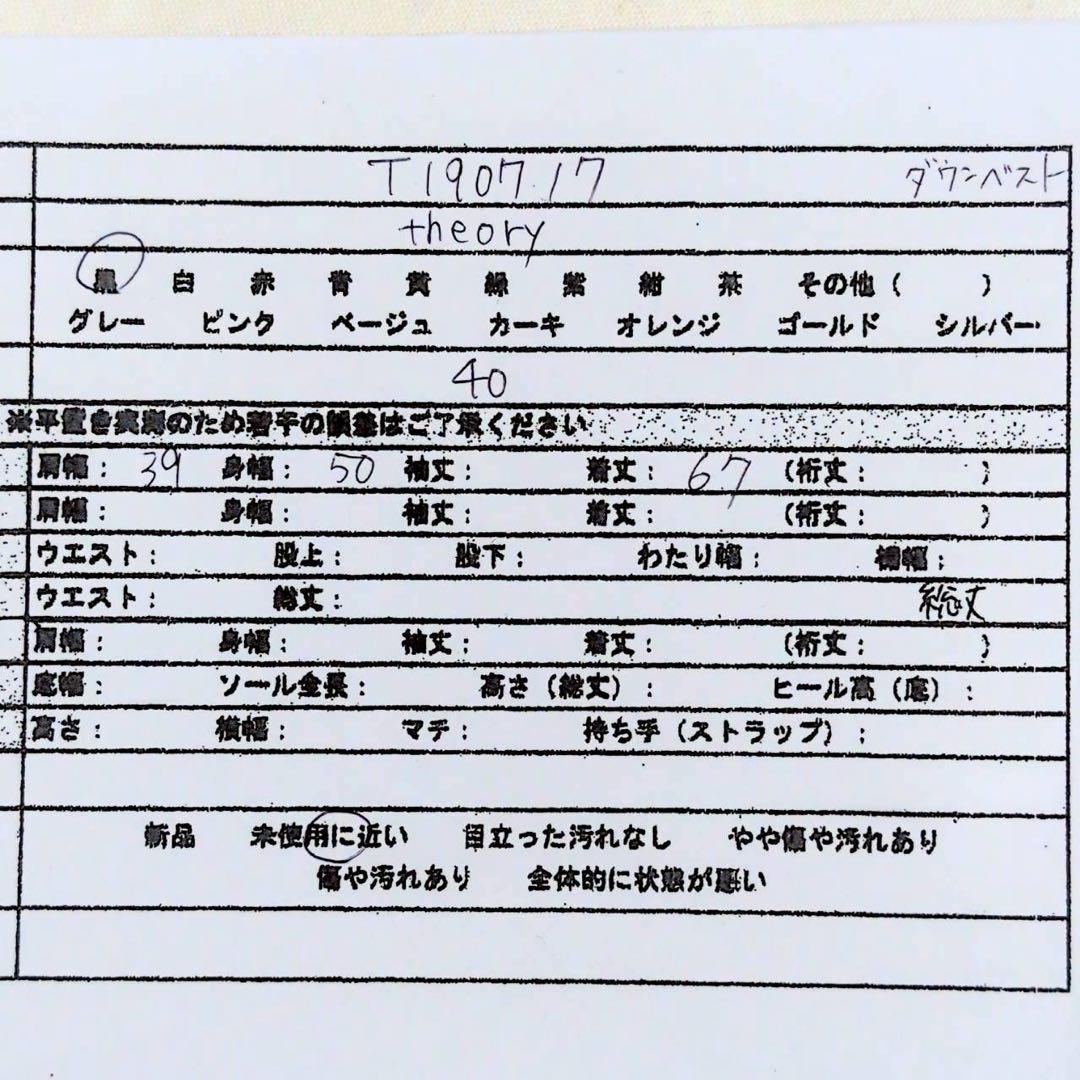 T190717 ダウンベスト
theory
黒 白 赤 青 黄 緑 紫 紺 茶 その他（ ）
グレー ピンク ベージュ カーキ オレンジ ゴールド シルバー
40
※平置き実測のため若干の誤差はご了承ください
肩幅： 39 身幅： 50 袖丈： 着丈： 67 （裄丈： ）
肩幅： 身幅： 袖丈： 着丈： （裄丈： ）
ウエスト： 股上： 股下： わたり幅： 裾幅：
ウエスト： 総丈： 総丈
肩幅： 身幅： 袖丈： 着丈： （裄丈： ）
底幅： ソール全長： 高さ（総丈）： ヒール高（底）：
高さ： 横幅： マチ： 持ち手（ストラップ）：
新品 未使用に近い 目立った汚れなし やや傷や汚れあり
傷や汚れあり 全体的に状態が悪い